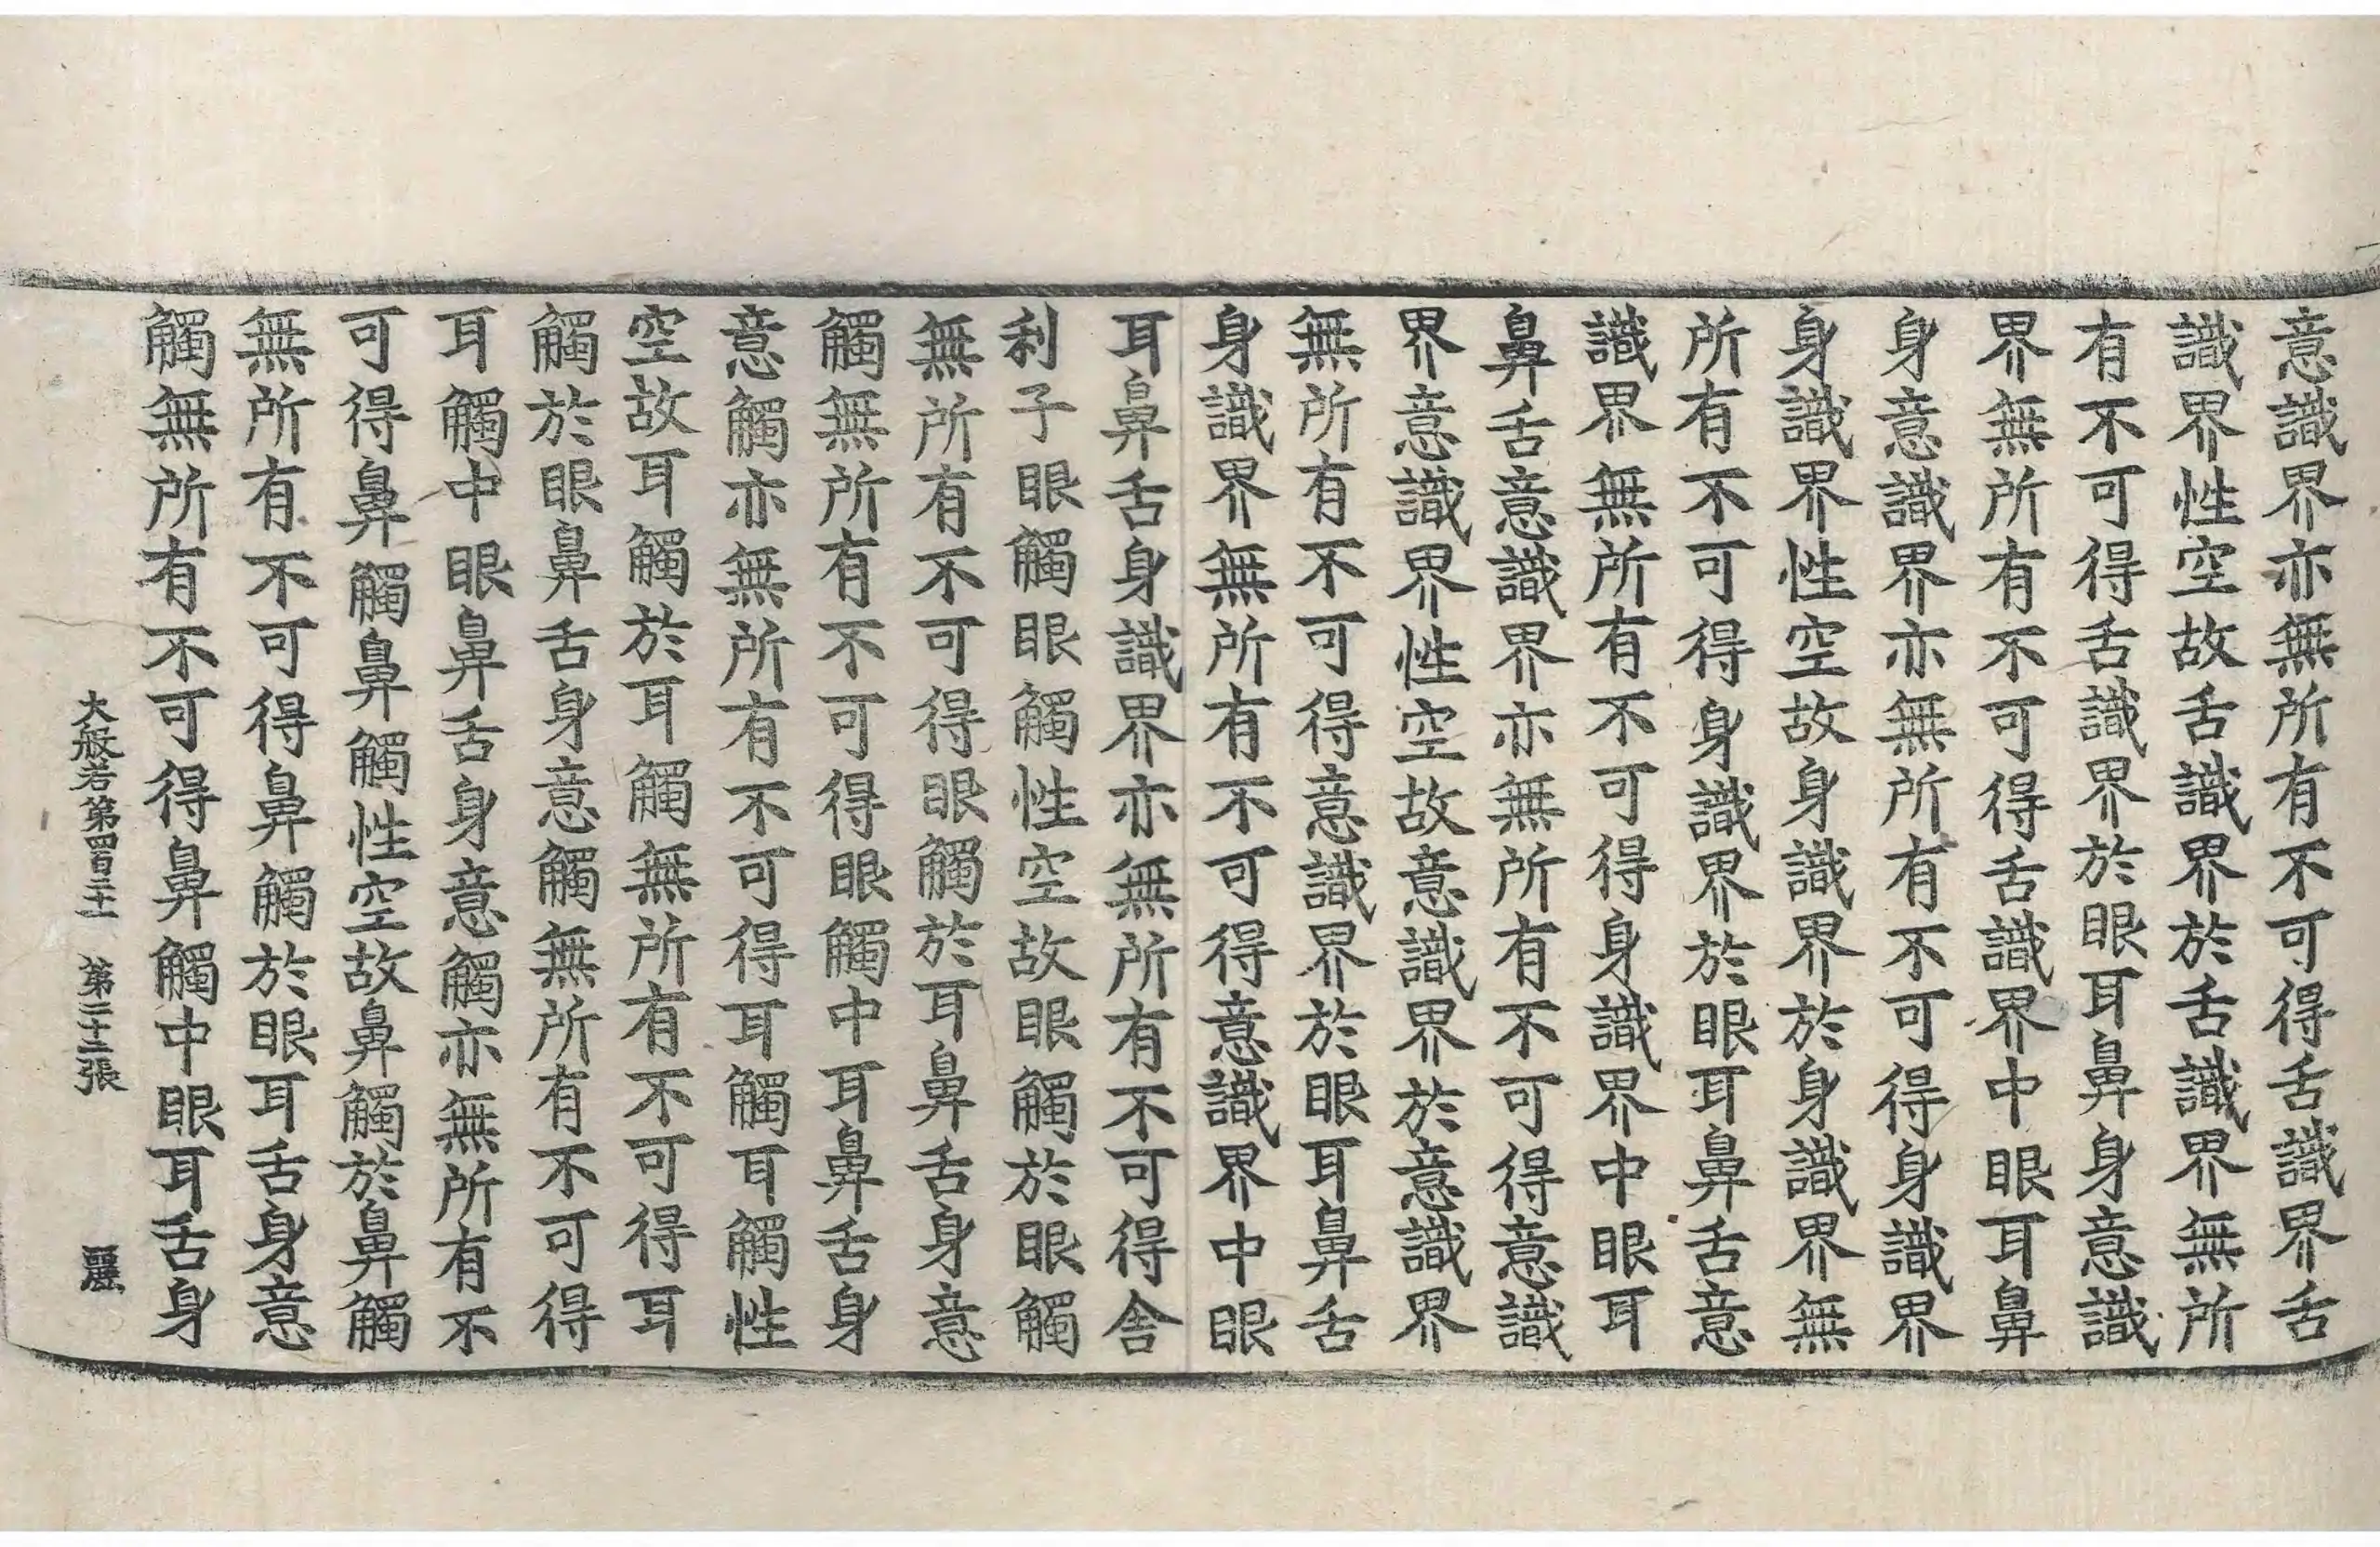 意識界亦無所有不可得舌識界舌
識界性空故舌識界於舌識界無所
有不可得舌識界於眼耳鼻身意識
界無所有不可得舌識界中眼耳鼻
身意識界亦無所有不可得身識界
身識界性空故身識界於身識界無
所有不可得身識界於眼耳鼻舌意
識界無所有不可得身識界中眼耳
鼻舌意識界亦無所有不可得意識
界意識界性空故意識界於意識界
無所有不可得意識界於眼耳鼻舌
身識界無所有不可得意識界中眼
耳鼻舌身識界亦無所有不可得舍
利子眼觸眼觸性空故眼觸於眼觸
無所有不可得眼觸於耳鼻舌身意
觸無所有不可得眼觸中耳鼻舌身
意觸亦無所有不可得耳觸耳觸性
空故耳觸於耳觸無所有不可得耳
觸於眼鼻舌身意觸無所有不可得
耳觸中眼鼻舌身意觸亦無所有不
可得鼻觸鼻觸性空故鼻觸於鼻觸
無所有不可得鼻觸於眼耳舌身意
觸無所有不可得鼻觸中眼耳舌身
大般若第四百二十一 第二十二張 麗